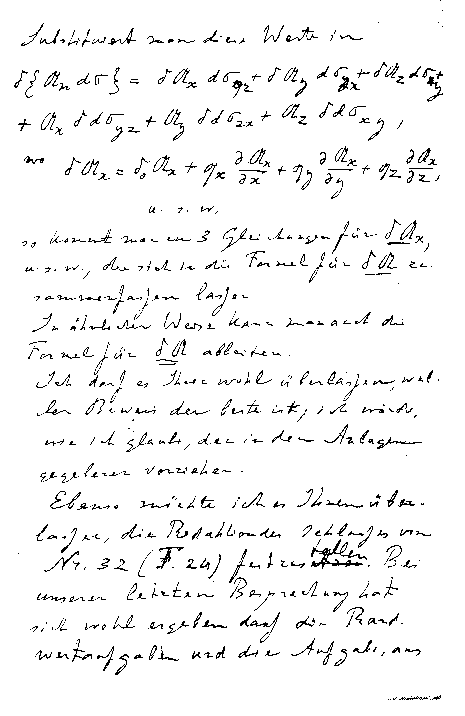 Substituiert man diese Werte in
δ{𝔄ₙ dσ} = δ𝔄ₓ dσ_yz + δ𝔄_y dσ_zx + δ𝔄_z dσ_xy
+ 𝔄ₓ δdσ_yz + 𝔄_y δdσ_zx + 𝔄_z δdσ_xy,
wo δ𝔄ₓ = δ₀𝔄ₓ + qₓ ∂𝔄ₓ/∂x + q_y ∂𝔄ₓ/∂y + q_z ∂𝔄ₓ/∂z,
u. s. w.
so kommt man zu 3 Gleichungen für δ𝔄ₓ,
u.s.w., die sich in die Formel für δ𝔄 zu-
sammenfassen lassen
In ähnlicher Weise kann man auch die
Formel für δ𝔄 ableiten.
Ich darf es Ihnen wohl überlassen, wel-
cher Beweis der beste ist; ich würde,
wie ich glaube, den in den Anlagen
gegebenen vorziehen.
Ebenso möchte ich es Ihnen über-
lassen, die Redaktion des Schlusses von
Nr. 32 (F. 24) festzustellen. Bei
unserer letzten Besprechung hat
sich wohl ergeben dass die Rand-
wertaufgaben und die Aufgabe, aus